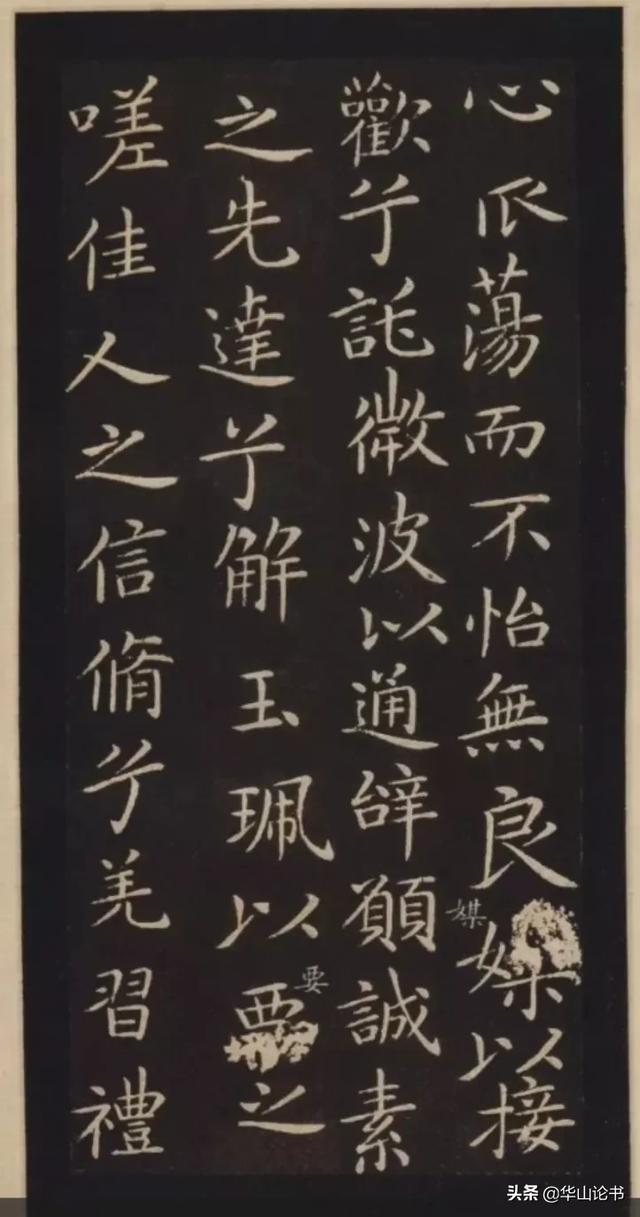 心𠂢蕩而不怡無良媒以接
媒
歡兮託微波以通辝願誠素
之先達兮解玉珮以要之
要
嗟佳人之信脩兮羌習禮
头条 @华山论书